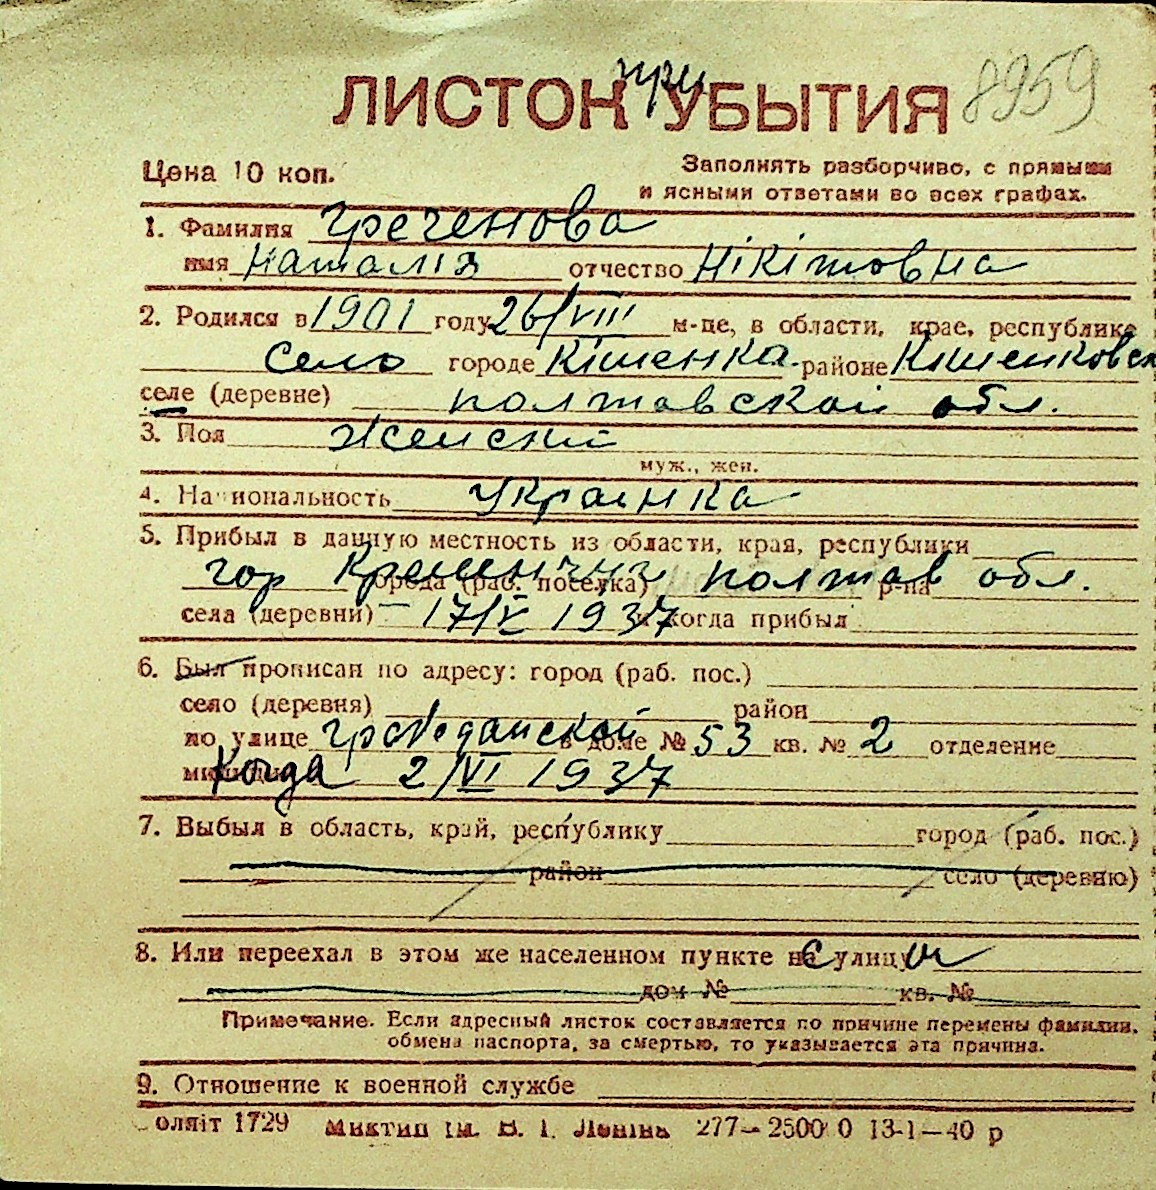 при 8959
ЛИСТОК УБЫТИЯ
Цена 10 коп. Заполнять разборчиво, с прямыми
и ясными ответами во всех графах.
1. Фамилия Греченова
имя Наталія отчество Нікітовна
2. Родился в 1901 году 26/VIII м-це, в области, крае, республике
село городе Кішенка районе Кішенковск
селе (деревне) полтавской обл.
3. Пол Женский
муж., жен.
4. Национальность Украинка
5. Прибыл в данную местность из области, края, республики
гор Кременчуг города (раб. поселка) полтав р-на обл.
села (деревни) – 17/V 1937 и когда прибыл
6. Был прописан по адресу: город (раб. пос.)
село (деревня) район
по улице Гражданской в доме № 53 кв. № 2 отделение
милиции Когда 2/VI 1937
7. Выбыл в область, край, республику город (раб. пос.)
район село (деревню)
8. Или переехал в этом же населенном пункте на улицу
дом № кв. №
Примечание. Если адресный листок составляется по причине перемены фамилии,
обмена паспорта, за смертью, то указывается эта причина.
9. Отношение к военной службе
оляіт 1729 Миктип ім. В. І. Леніна 277—25000 13-1—40 р